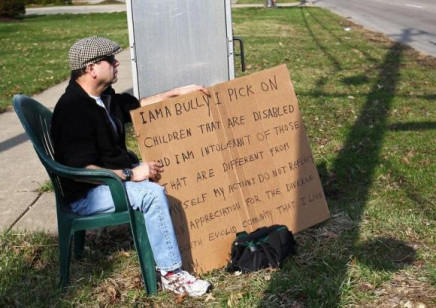 I AM A BULLY I PICK ON
CHILDREN THAT ARE DISABLED
AND I AM INTOLERANT OF THOSE
THAT ARE DIFFERENT FROM
MYSELF MY ACTIONS DO NOT REFLECT
APPRECIATION FOR THE DIVERSE
SOUTH EUCLID COMMUNITY THAT I LIVE